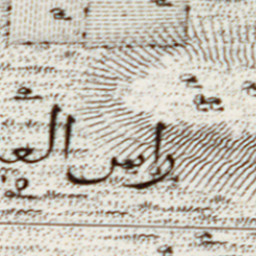 راس الع